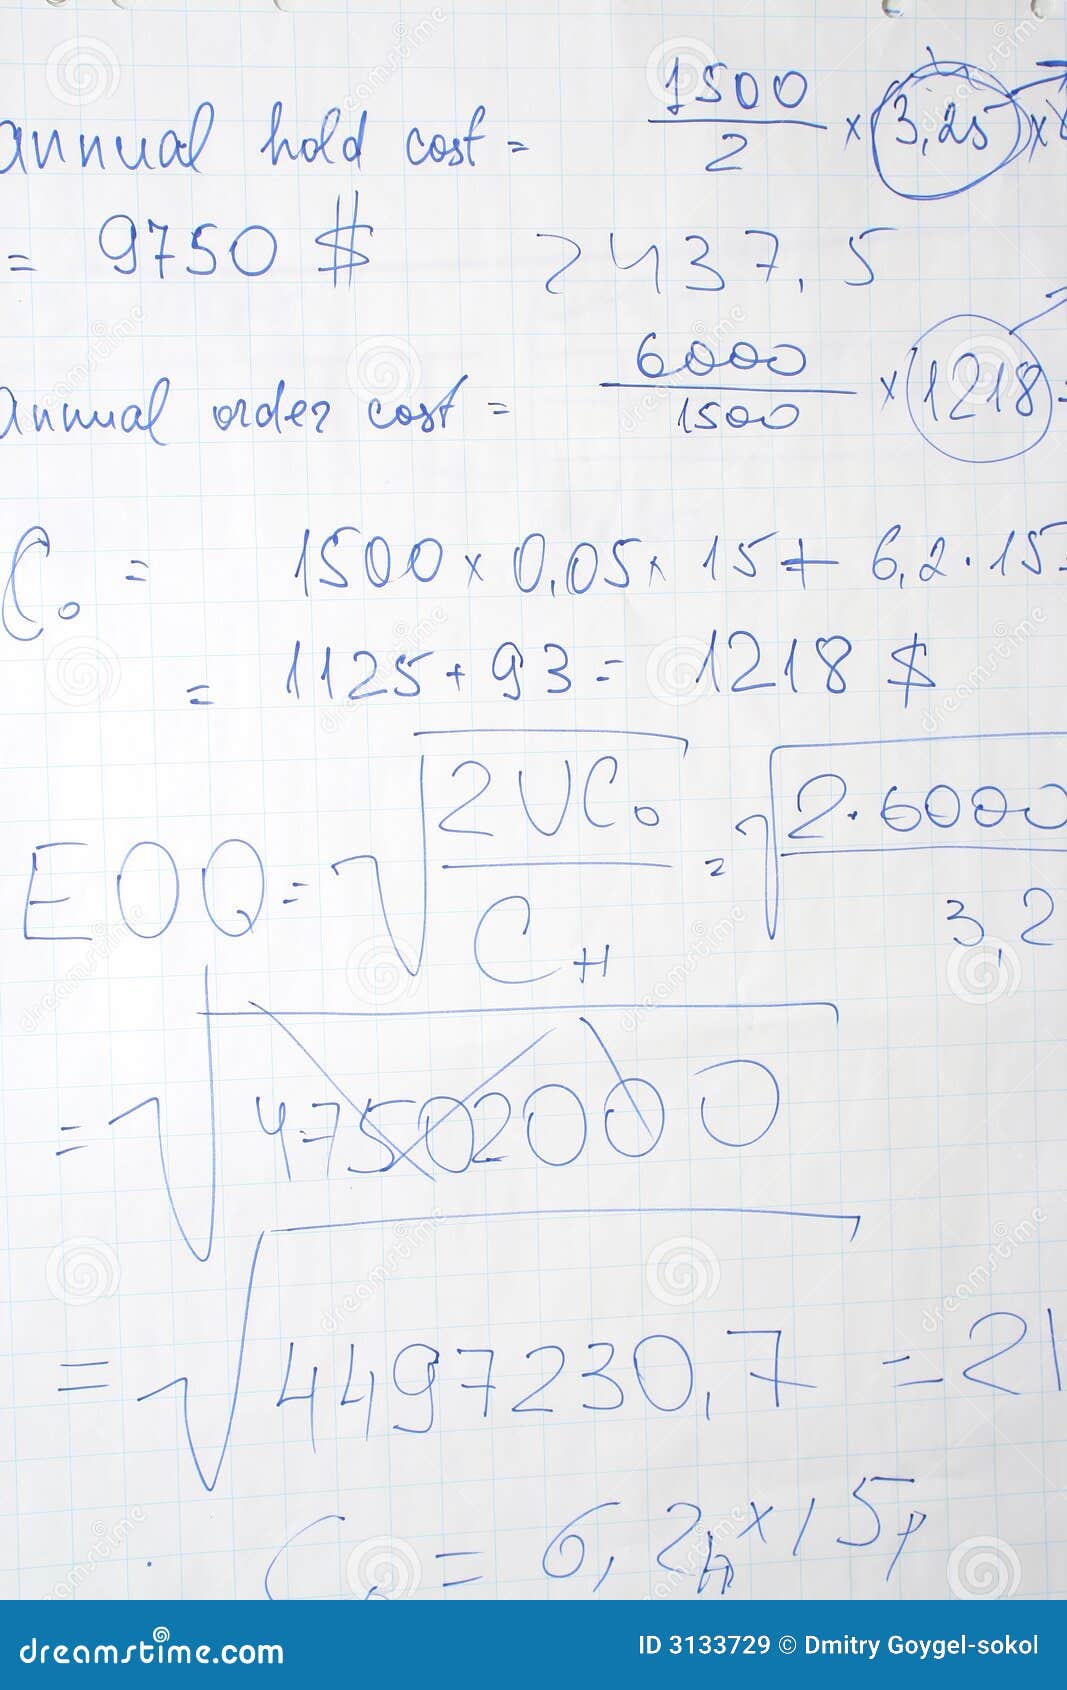 annual hold cost = 1500/2 × 3,25 ×
= 9750 $ 2437,5
annual order cost = 6000/1500 × 1218 =
C₀ = 1500 × 0,05 × 15 + 6,2 · 15 =
= 1125 + 93 = 1218 $
EOQ = √(2UC₀/C_H) = √(2·6000/3,2
= √47502000 0
= √4497230,7 = 21
= 6,2h × 15p
dreamstime.com
ID 3133729 © Dmitry Goygel-sokol